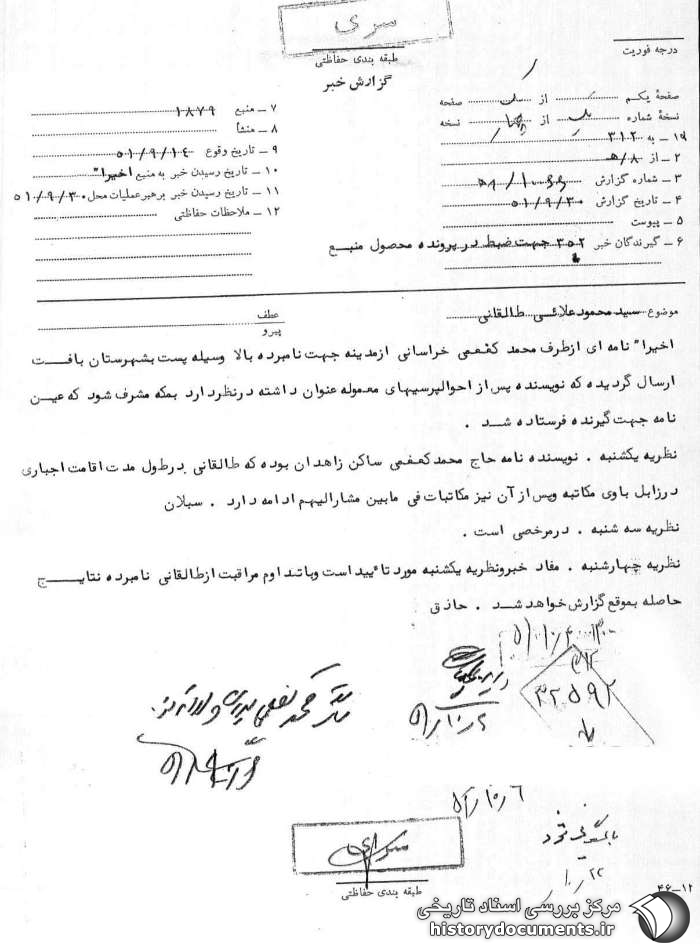 سری
درجه فوریت
طبقه بندی حفاظتی
گزارش خبر
صفحهٔ یکم از یک صفحه
نسخهٔ شماره یک از چهار نسخه
۱ـ به ۳۱۲
۲ـ از ۸/ه
۳ـ شماره گزارش
۴ـ تاریخ گزارش ۵۱/۹/۳۰
۵ـ پیوست
۶ـ گیرندگان خبر ۳۵۲ جهت ضبط در پرونده محصول منبع
۷ـ منبع ۱۸۷۹
۸ـ منشأ
۹ـ تاریخ وقوع ۵۱/۹/۱۴
۱۰ـ تاریخ رسیدن خبر به منبع اخیرا"
۱۱ـ تاریخ رسیدن خبر برهبر عملیات محل ۵۱/۹/۳۰
۱۲ـ ملاحظات حفاظتی
موضوع سید محمود علائی طالقانی
عطف
پیرو
اخیرا" نامه ای ازطرف محمد کفعمی خراسانی ازمدینه جهت نامبرده بالا وسیله پست بشهرستان بافت
ارسال گردیده که نویسنده پس از احوالپرسیهای معموله عنوان داشته درنظردارد بمکه مشرف شود که عین
نامه جهت گیرنده فرستاده شد .
نظریه یکشنبه . نویسنده نامه حاج محمدکفعمی ساکن زاهدان بوده که طالقانی درطول مدت اقامت اجباری
درزابل باوی مکاتبه وپس از آن نیز مکاتبات فی مابین مشارالیهم ادامه دارد . سبلان
نظریه سه شنبه . درمرخصی است .
نظریه چهارشنبه . مفاد خبرونظریه یکشنبه مورد تأیید است وباتداوم مراقبت ازطالقانی نامبرده نتایج
حاصله بموقع گزارش خواهد شد . حاذق
۳۱۲
۳۲۵۹۲
۵۱/۱۰/۶
بایگانی شود
۱۰/۲۲
سری
طبقه بندی حفاظتی
۱۲ـ۴۶
مرکز بررسی اسناد تاریخی
historydocuments.ir